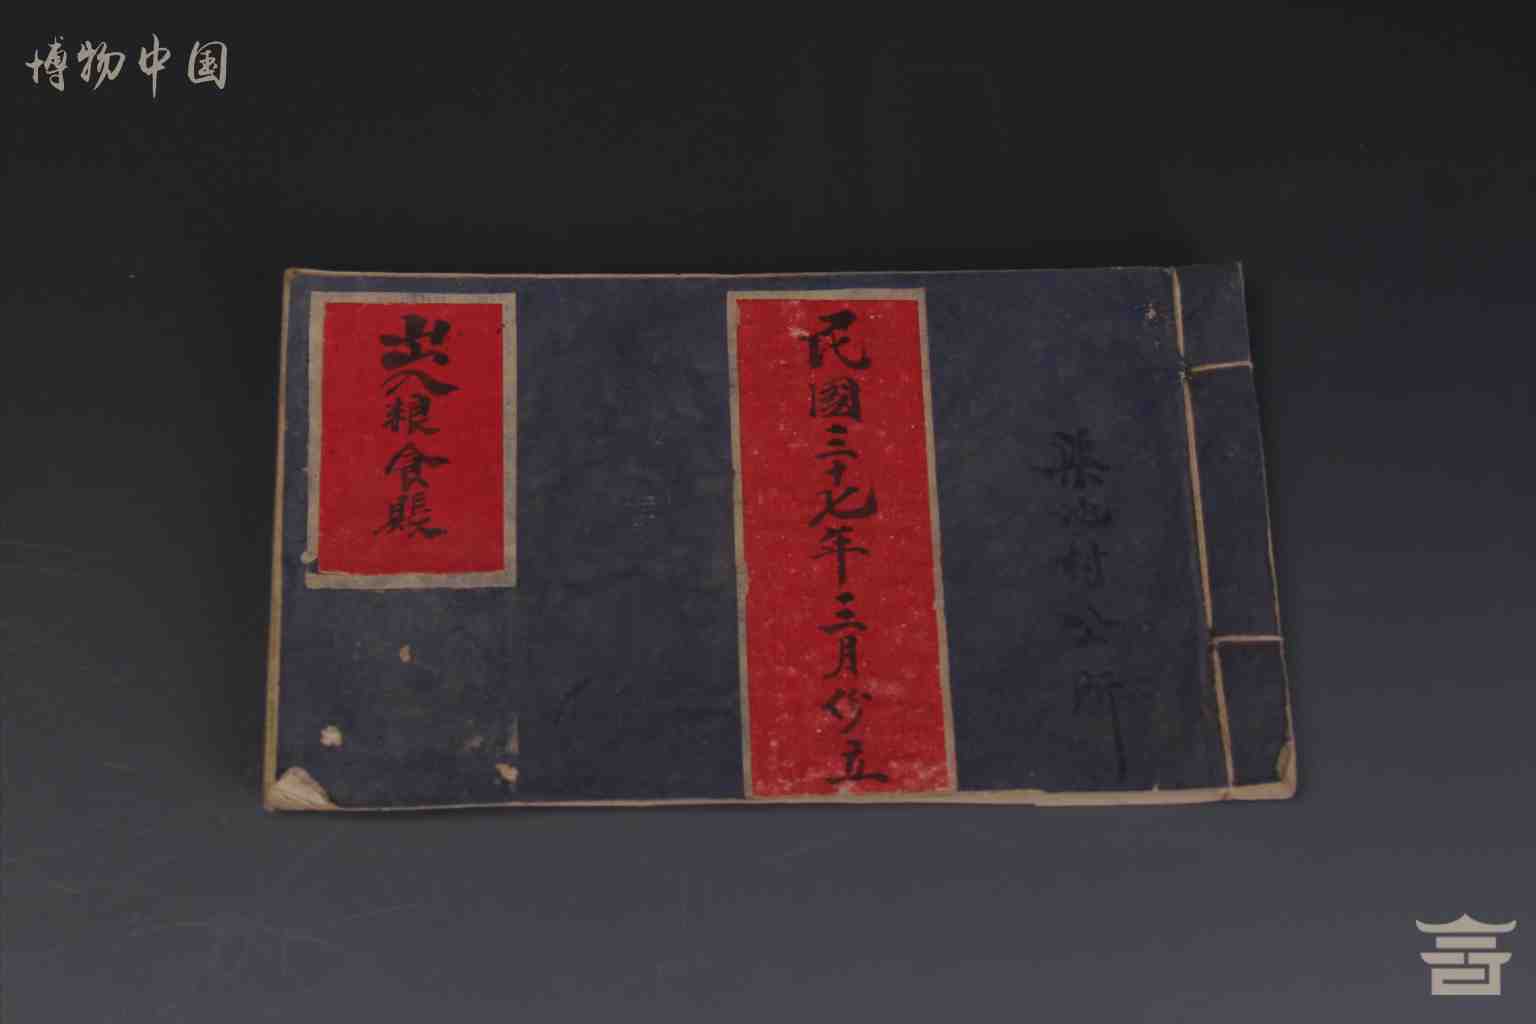 博物中国
渠池村公所
民國三十七年三月份立
出入粮食賬